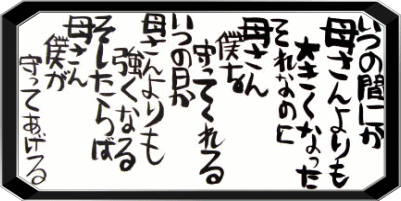 いつの間にか
母さんよりも
大きくなった
それなのに
母さん
僕を
守ってくれる
いつの日か
母さんよりも
強くなる
そしたらば
母さん
僕が
守ってあげる